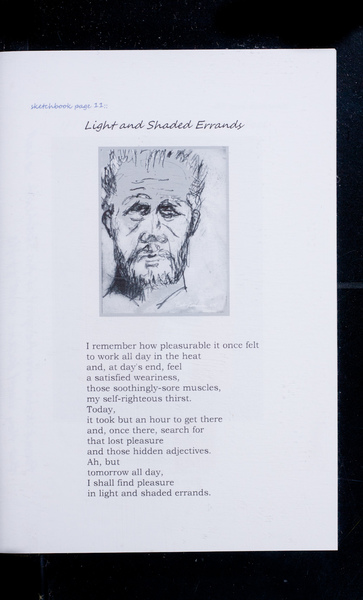 sketchbook page 11::
Light and Shaded Errands
I remember how pleasurable it once felt
to work all day in the heat
and, at day's end, feel
a satisfied weariness,
those soothingly-sore muscles,
my self-righteous thirst.
Today,
it took but an hour to get there
and, once there, search for
that lost pleasure
and those hidden adjectives.
Ah, but
tomorrow all day,
I shall find pleasure
in light and shaded errands.